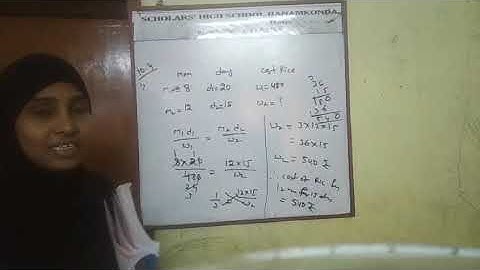 SCHOLARS' HIGH SCHOOL HANAMKONDA
men days cost Rice
m1 = 8 d1 = 20 w1 = 480
m2 = 12 d2 = 15 w2 = ?
m1 d1 / w1 = m2 d2 / w2
8 x 20 / 480 = 12 x 15 / w2
1 / 3 12 x 15 / w2
36
15
180
36
540
w2 = 3 x 12 x 15
= 36 x 15
w2 = 540
cost of Rice for
12 men for 15 days
= 540